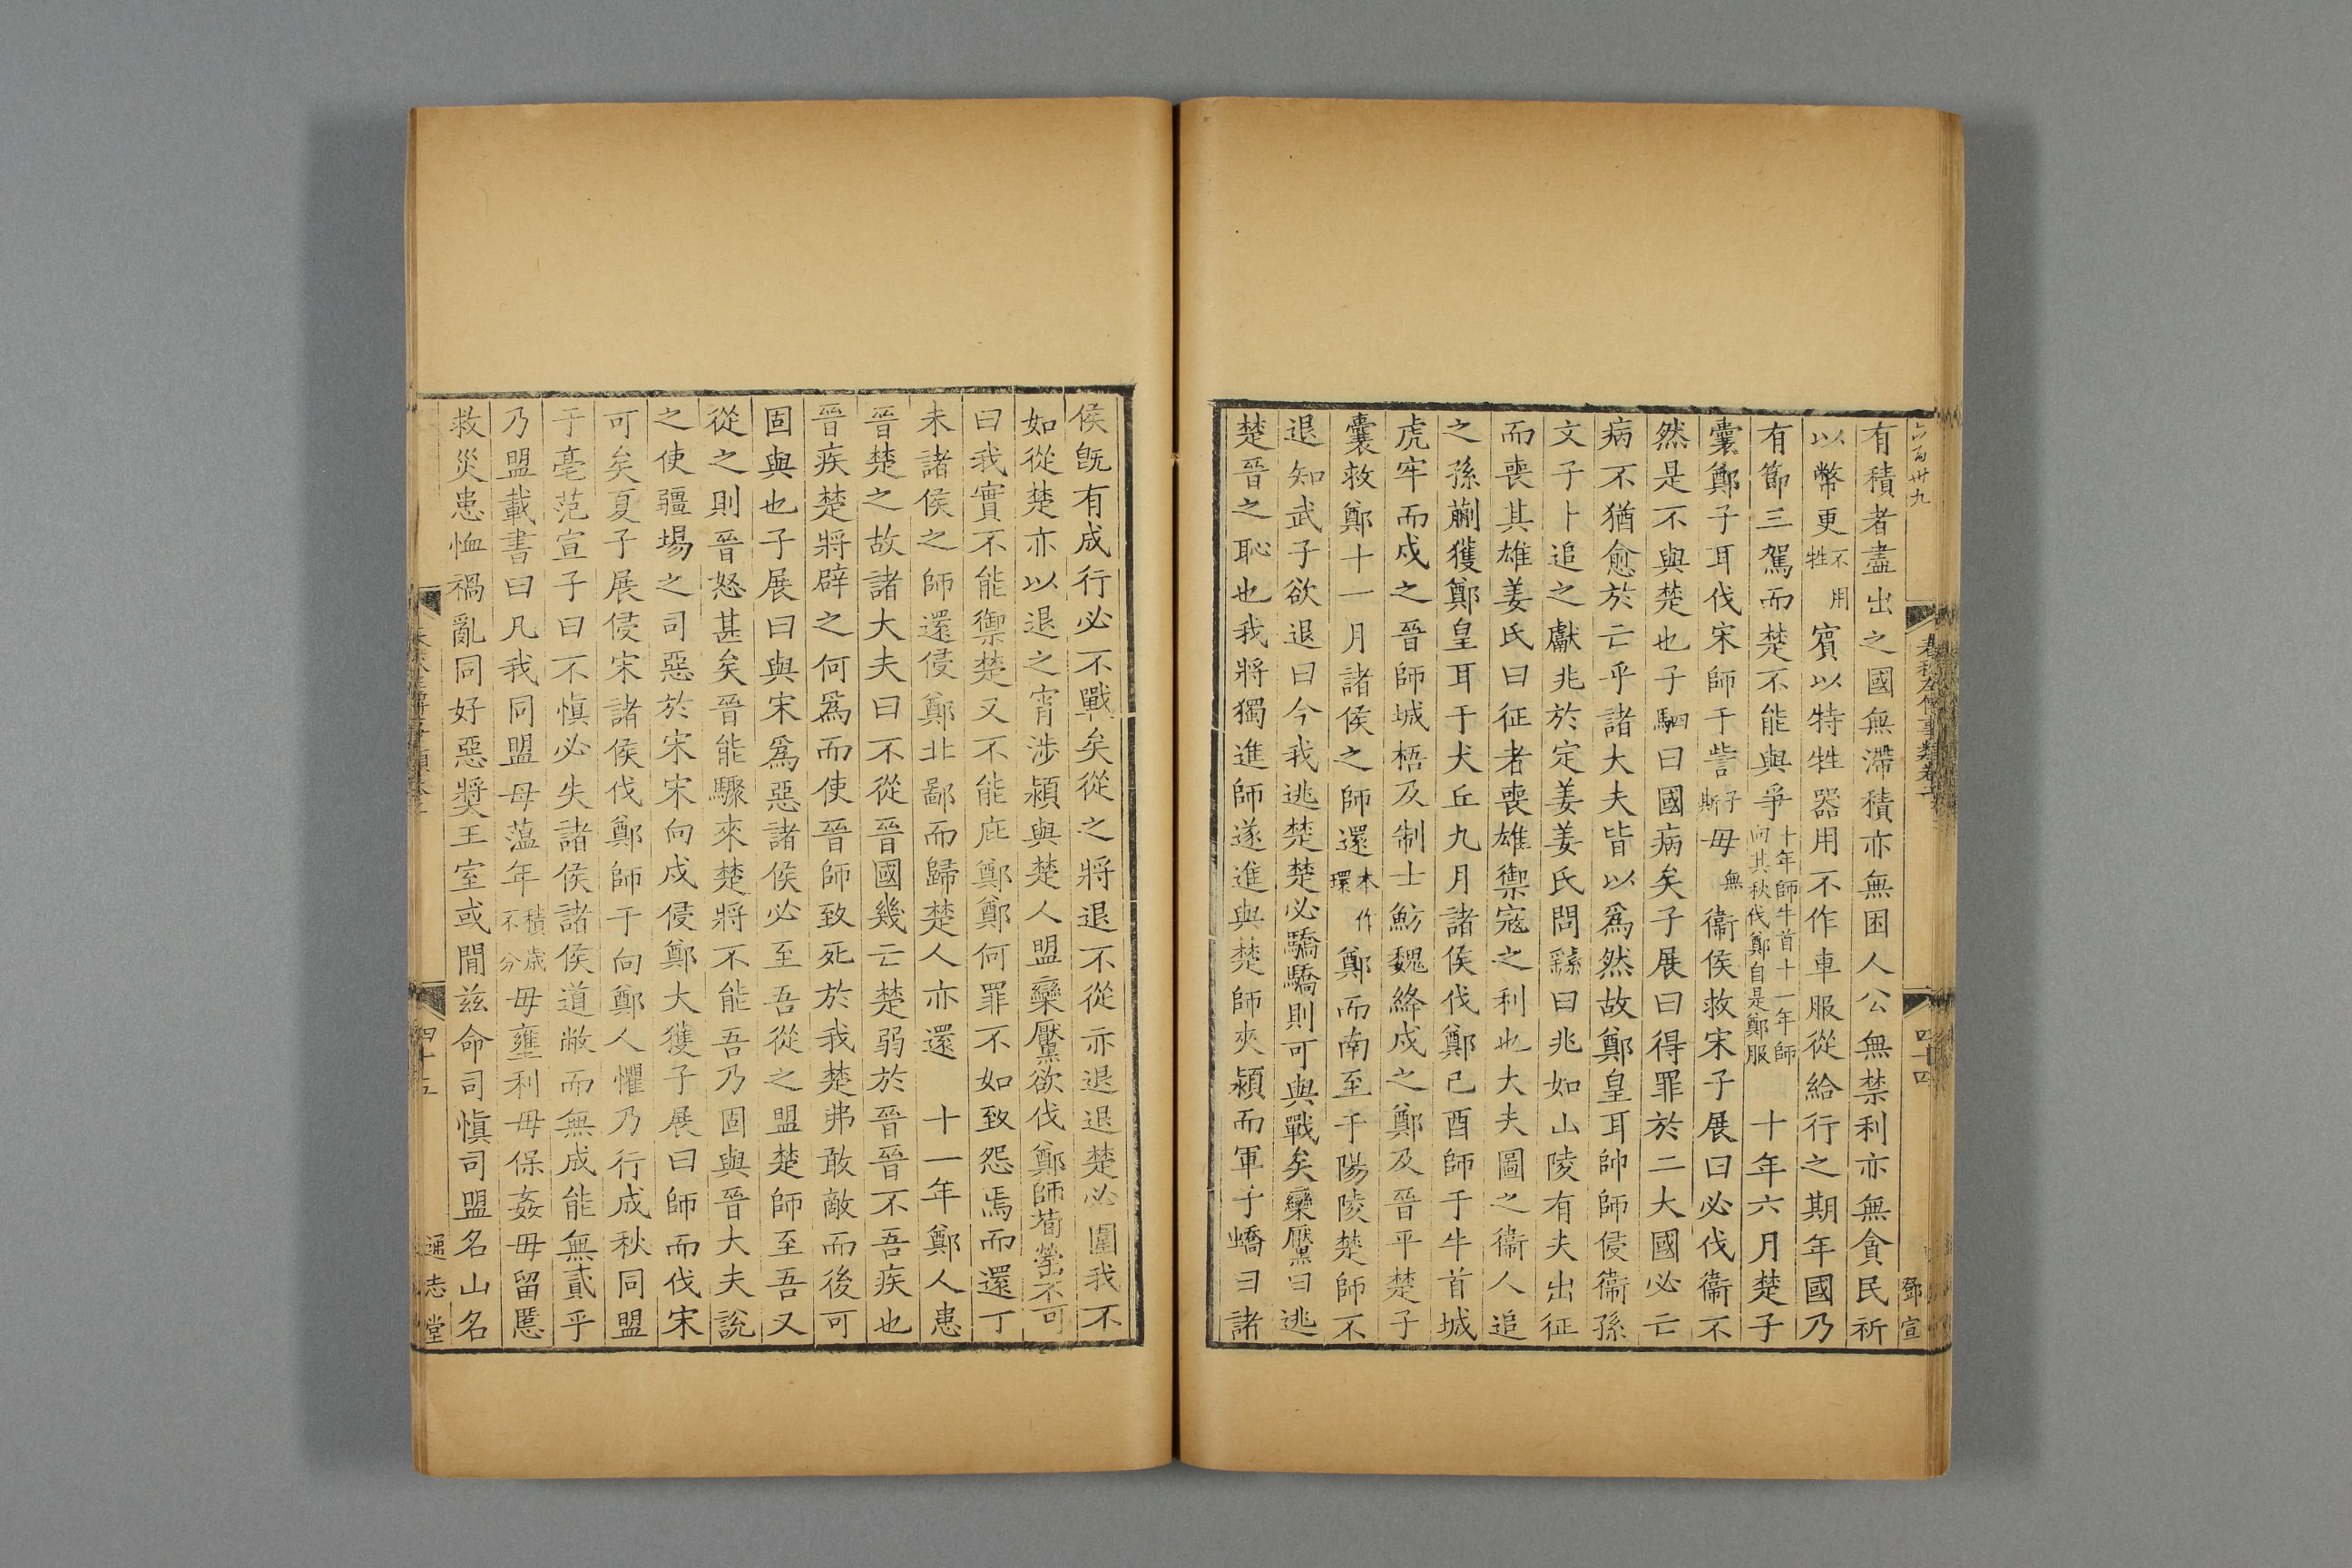 六百卅九
春秋左傳事類
四十四
鄧宣
有積者盡出之國無滯積亦無困人公無禁利亦無貪民祈
以幣更不用牲賓以特牲器用不作車服從給行之期年國乃
有節三駕而楚不能與爭十年師牛首十一年師向其秋伐鄭自是鄭服 十年六月楚子
囊鄭子耳伐宋師于訾子斯毋無衞侯救宋子展曰必伐衞不
然是不與楚也子駟曰國病矣子展曰得罪於二大國必亡
病不猶愈於亡乎諸大夫皆以爲然故鄭皇耳帥師侵衞孫
文子卜追之獻兆於定姜姜氏問繇曰兆如山陵有夫出征
而喪其雄姜氏曰征者喪雄禦寇之利也大夫圖之衞人追
之孫蒯獲鄭皇耳于犬丘九月諸侯伐鄭己酉師于牛首城
虎牢而戍之晉師城梧及制士魴魏絳戍之鄭及晉平楚子
囊救鄭十一月諸侯之師還本作環鄭而南至于陽陵楚師不
退知武子欲退曰今我逃楚楚必驕驕則可與戰矣欒黶曰逃
楚晉之恥也我將獨進師遂進與楚師夾潁而軍子蟜曰諸
侯旣有成行必不戰矣從之將退不從亦退退楚必圍我不
如從楚亦以退之宵涉潁與楚人盟欒黶欲伐鄭師荀罃不可
曰我實不能禦楚又不能庇鄭鄭何罪不如致怨焉而還丁
未諸侯之師還侵鄭北鄙而歸楚人亦還 十一年鄭人患
晉楚之故諸大夫曰不從晉國幾亡楚弱於晉晉不吾疾也
晉疾楚將辟之何爲而使晉師致死於我楚弗敢敵而後可
固與也子展曰與宋爲惡諸侯必至吾從之盟楚師至吾又
從之則晉怒甚矣晉能驟來楚將不能吾乃固與晉大夫說
之使疆場之司惡於宋宋向戌侵鄭大獲子展曰師而伐宋
可矣夏子展侵宋諸侯伐鄭師于向鄭人懼乃行成秋同盟
于亳范宣子曰不愼必失諸侯諸侯道敝而無成能無貳乎
乃盟載書曰凡我同盟毋薀年積歲不分毋壅利毋保姦毋留慝
救災患恤禍亂同好惡奬王室或閒兹命司愼司盟名山名
四十五
通志堂